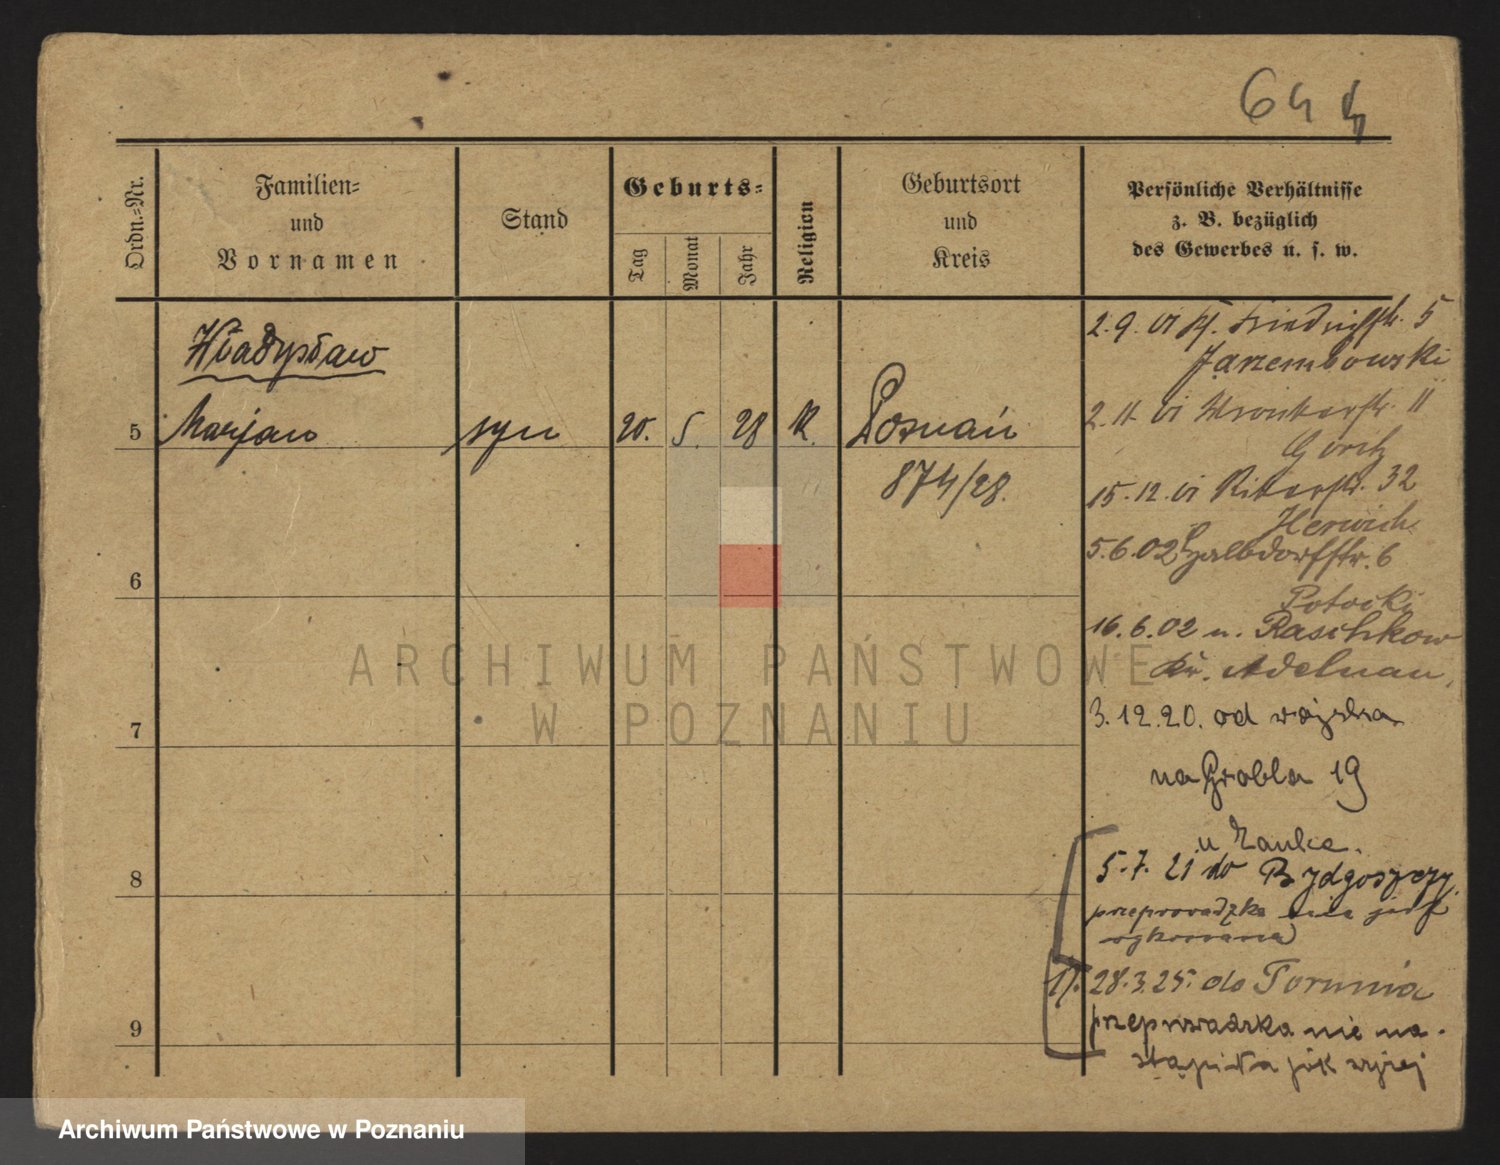 64
Ordn.=Nr.
Familien=
und
Vornamen
Stand
Geburts=
Tag
Monat
Jahr
Religion
Geburtsort
und
Kreis
Persönliche Verhältnisse
z. B. bezüglich
des Gewerbes u. s. w.
Władysław
5 Marjan syn 20. 5. 28 K. Poznań
874/28.
6
7
8
9
2.9. 01 Friedrichstr. 5
Jarzembowski
2.11. 01 Wronkerstr. 11
15.12. 01 Ritterstr. 32
Herwich
5.6.02 Halbdorfstr. 6
Potocki
16.6.02 n. Raschkow
Kr. Adelnau.
3.12.20. od wojska
na Grobla 19
u
5.7.21 do Bydgoszczy
przeprowadzka nie jest
wykonana
17. 28.3.25. do Torunia
przeprowadzka nie na-
stąpiła jak wyżej
ARCHIWUM PAŃSTWOWE
W POZNANIU
Archiwum Państwowe w Poznaniu